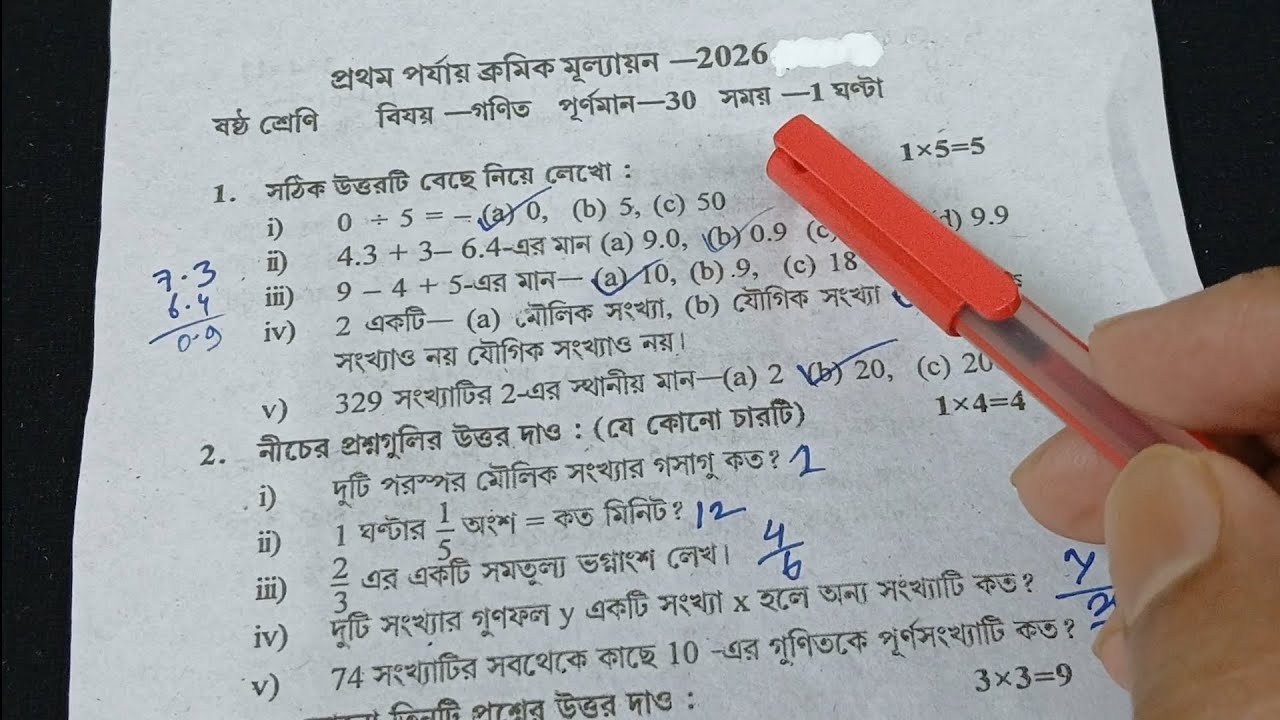 প্রথম পর্যায় ক্রমিক মূল্যায়ন —2026
ষষ্ঠ শ্রেণি বিষয় —গণিত পূর্ণমান—30 সময় —1 ঘণ্টা
1. সঠিক উত্তরটি বেছে নিয়ে লেখো : 1×5=5
i) 0 ÷ 5 = – (a) 0, (b) 5, (c) 50
ii) 4.3 + 3– 6.4-এর মান (a) 9.0, (b) 0.9 (c) 9.9
7.3
6.4
0.9
iii) 9 – 4 + 5-এর মান— (a) 10, (b) 9, (c) 18
iv) 2 একটি— (a) মৌলিক সংখ্যা, (b) যৌগিক সংখ্যা
সংখ্যাও নয় যৌগিক সংখ্যাও নয়।
v) 329 সংখ্যাটির 2-এর স্থানীয় মান—(a) 2 (b) 20, (c) 20
2. নীচের প্রশ্নগুলির উত্তর দাও : (যে কোনো চারটি) 1×4=4
i) দুটি পরস্পর মৌলিক সংখ্যার গসাগু কত? 1
ii) 1 ঘণ্টার 1/5 অংশ = কত মিনিট? 12
iii) 2/3 এর একটি সমতুল্য ভগ্নাংশ লেখ। 4/6
iv) দুটি সংখ্যার গুণফল y একটি সংখ্যা x হলে অন্য সংখ্যাটি কত? y
v) 74 সংখ্যাটির সবথেকে কাছে 10 -এর গুণিতকে পূর্ণসংখ্যাটি কত?
তিনটি প্রশ্নের উত্তর দাও : 3×3=9